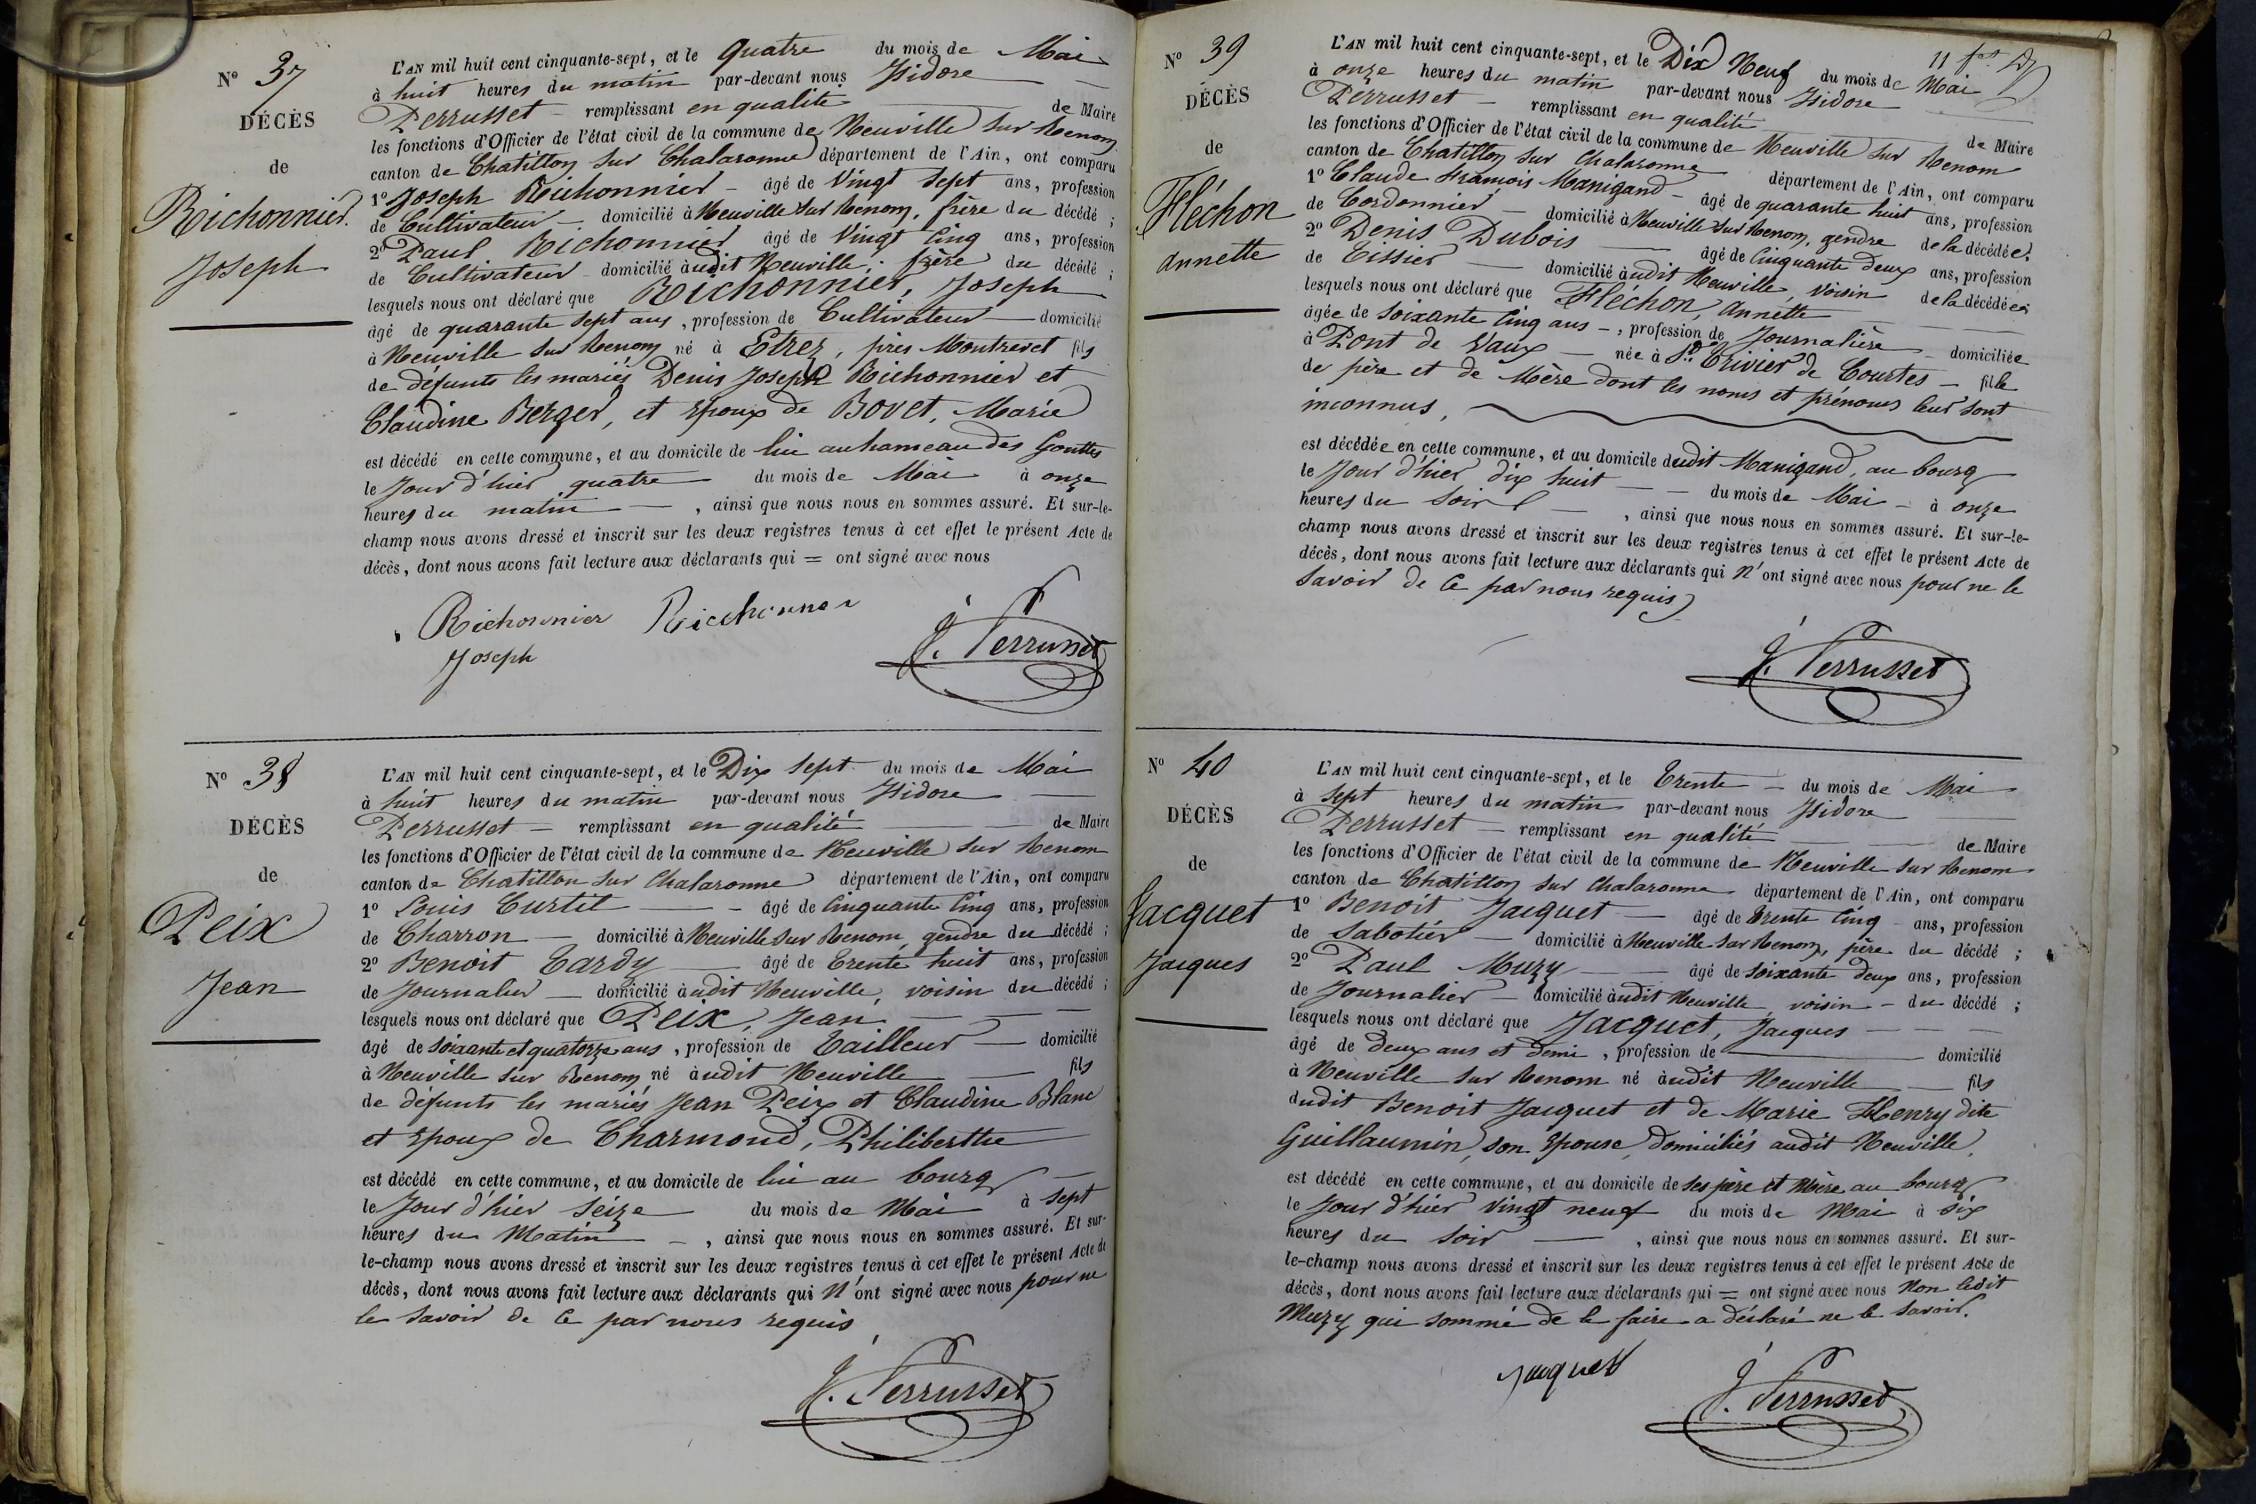 N° 37
DÉCÈS
de
Richonnier
Joseph
L'AN mil huit cent cinquante-sept, et le Quatre du mois de Mai
à huit heures du matin par-devant nous Isidore
Perrusset remplissant en qualité de Maire
les fonctions d'Officier de l'état civil de la commune de Neuville sur Renom
canton de Chatillon sur Chalaronne département de l'Ain, ont comparu
1° Joseph Richonnier âgé de Vingt sept ans, profession
de Cultivateur domicilié à Neuville sur Renom, frère du décédé ;
2° Paul Richonnier âgé de Vingt Cinq ans, profession
de Cultivateur domicilié àudit Neuville, frère du décédé ;
lesquels nous ont déclaré que Richonnier, Joseph
âgé de quarante sept ans, profession de Cultivateur domicilié
à Neuville sur Renom né à Etrez, près Montrevet fils
de défunts les mariés Denis Joseph Richonnier et
Claudine Berger, et Epoux de Bovet, Marie
est décédé en cette commune, et au domicile de lui au hameau des Gouttes
le Jour d'hier quatre du mois de Mai à onze
heures du matin , ainsi que nous nous en sommes assuré. Et sur-le-
champ nous avons dressé et inscrit sur les deux registres tenus à cet effet le présent Acte de
décès, dont nous avons fait lecture aux déclarants qui = ont signé avec nous
Richonnier Ricchonner
Joseph
J. Perrusset
N° 38
DÉCÈS
de
Peix
Jean
L'AN mil huit cent cinquante-sept, et le Dix Sept du mois de Mai
à huit heures du matin par-devant nous Isidore
Perrusset remplissant en qualité de Maire
les fonctions d'Officier de l'état civil de la commune de Neuville sur Renom
canton de Chatillon sur Chalaronne département de l'Ain, ont comparu
1° Louis Curtil âgé de Cinquante Cinq ans, profession
de Charron domicilié à Neuville sur Renom, gendre du décédé ;
2° Benoit Tardy âgé de Trente huit ans, profession
de Journalier domicilié àudit Neuville, voisin du décédé ;
lesquels nous ont déclaré que Peix, Jean
âgé de soixante et quatorze ans, profession de Tailleur domicilié
à Neuville sur Renom né àudit Neuville fils
de défunts les mariés Jean Peix et Claudine Blanc
et Epoux de Charmond, Philiberthe
est décédé en cette commune, et au domicile de lui au bourg
le Jour d'hier Seize du mois de Mai à sept
heures du Matin , ainsi que nous nous en sommes assuré. Et sur-
le-champ nous avons dressé et inscrit sur les deux registres tenus à cet effet le présent Acte de
décès, dont nous avons fait lecture aux déclarants qui N'ont signé avec nous pour ne
le Savoir de Ce par nous requis
J. Perrusset
N° 39
DÉCÈS
de
Fléchon
Annette
L'AN mil huit cent cinquante-sept, et le Dix Neuf du mois de Mai
à onze heures du matin par-devant nous Isidore
Perrusset remplissant en qualité de Maire
les fonctions d'Officier de l'état civil de la commune de Neuville sur Renom
canton de Chatillon sur Chalaronne département de l'Ain, ont comparu
1° Claude François Manigand âgé de quarante huit ans, profession
de Cordonnier domicilié à Neuville sur Renom, gendre de la décédée ;
2° Denis Dubois âgé de Cinquante deux ans, profession
de Tissier domicilié àudit Neuville, voisin de la décédée ;
lesquels nous ont déclaré que Fléchon, Annette
âgée de Soixante Cinq ans, profession de Journalière domiciliée
à Pont de Vaux née à St Trivier de Courtes fille
de père et de Mère dont les noms et prénoms leur sont
inconnus,
est décédée en cette commune, et au domicile dudit Manigand, au bourg
le Jour d'hier dix huit du mois de Mai à onze
heures du Soir , ainsi que nous nous en sommes assuré. Et sur-le-
champ nous avons dressé et inscrit sur les deux registres tenus à cet effet le présent Acte de
décès, dont nous avons fait lecture aux déclarants qui N'ont signé avec nous pour ne le
Savoir de Ce par nous requis
J. Perrusset
N° 40
DÉCÈS
de
Jacquet
Jacques
L'AN mil huit cent cinquante-sept, et le Trente du mois de Mai
à Sept heures du matin par-devant nous Isidore
Perrusset remplissant en qualité de Maire
les fonctions d'Officier de l'état civil de la commune de Neuville sur Renom
canton de Chatillon sur Chalaronne département de l'Ain, ont comparu
1° Benoit Jacquet âgé de Trente Cinq ans, profession
de Sabotier domicilié à Neuville sur Renom, père du décédé ;
2° Paul Muzy âgé de Soixante deux ans, profession
de Journalier domicilié àudit Neuville, voisin du décédé ;
lesquels nous ont déclaré que Jacquet, Jacques
âgé de Deux ans et Demi, profession de domicilié
à Neuville sur Renom né àudit Neuville fils
dudit Benoit Jacquet et de Marie Henry dite
Guillaumin, son Epouse, domiciliés audit Neuville,
est décédé en cette commune, et au domicile de ses père et Mère au bourg
le Jour d'hier Vingt neuf du mois de Mai à six
heures du Soir , ainsi que nous nous en sommes assuré. Et sur-
le-champ nous avons dressé et inscrit sur les deux registres tenus à cet effet le présent Acte de
décès, dont nous avons fait lecture aux déclarants qui = ont signé avec nous Non ledit
Muzy qui sommé de le faire a déclaré ne le Savoir.
J. Perrusset